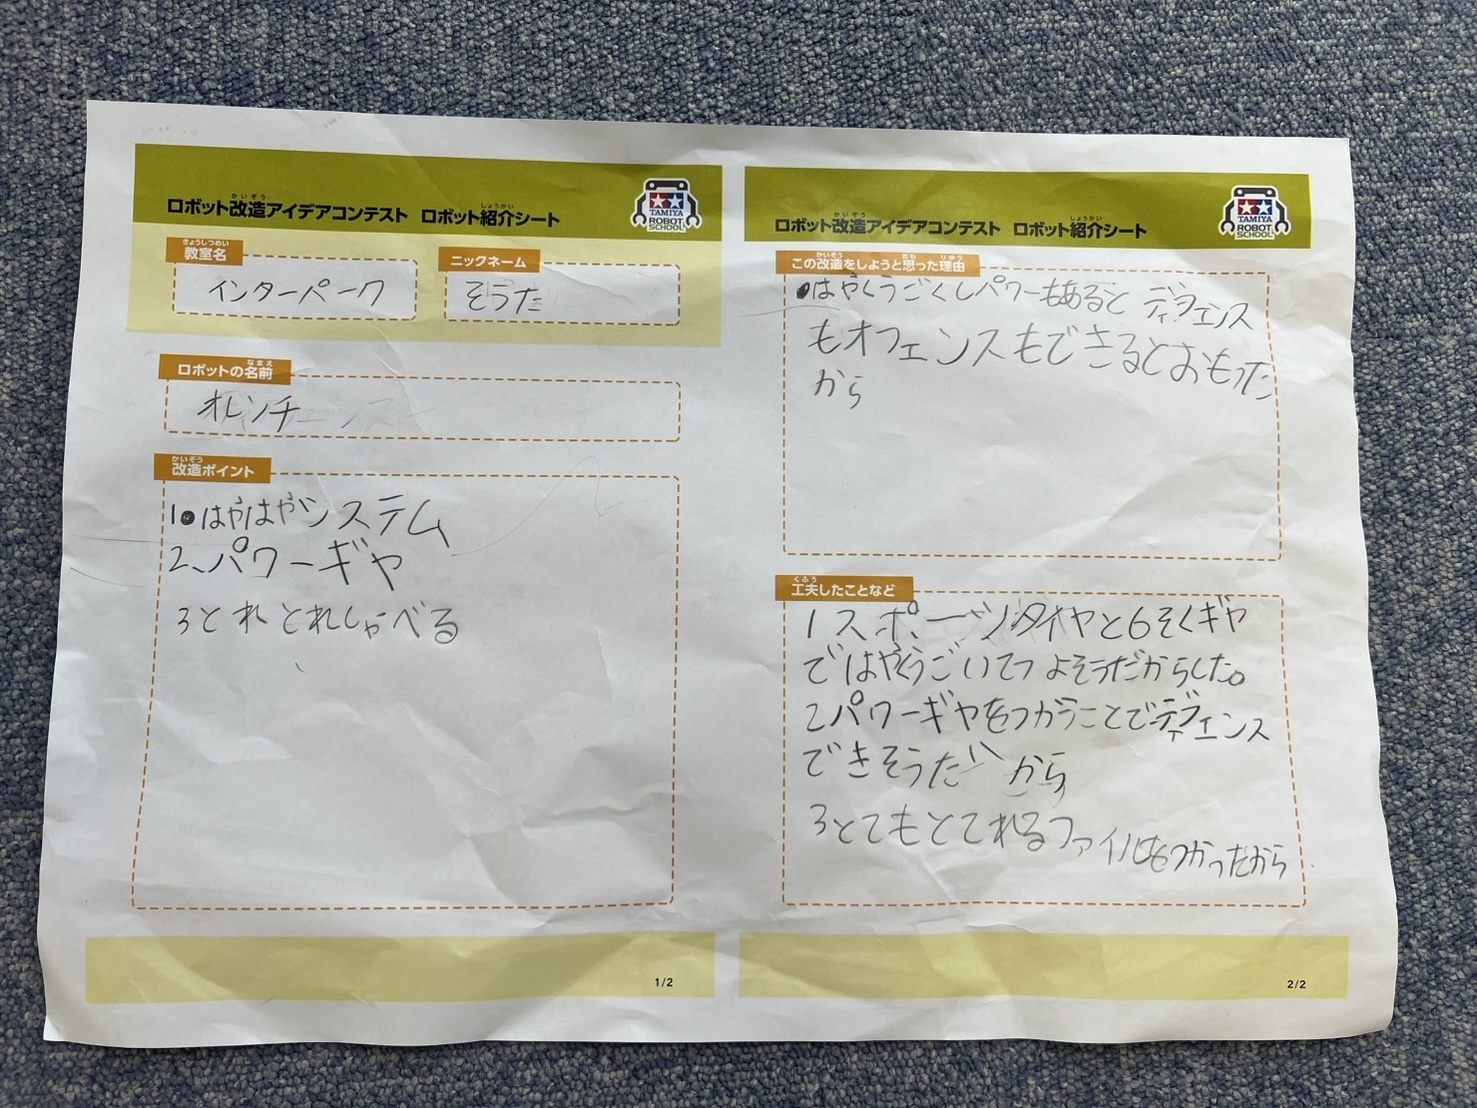 ロボット改造アイデアコンテスト ロボット紹介シート
かいぞう しょうかい
TAMIYA
ROBOT
SCHOOL
きょうしつめい
教室名
インターパーク
ニックネーム
そうた
なまえ
ロボットの名前
オレンチ
かいぞう
改造ポイント
1.はやはやシステム
2、パワーギヤ
3とれとれしゃべる
1/2
ロボット改造アイデアコンテスト ロボット紹介シート
かいぞう しょうかい
TAMIYA
ROBOT
SCHOOL
かいぞう おも りゆう
この改造をしようと思った理由
はやくうごくしパワーもあると ディフェンス
もオフェンスもできるとおもった
から
くふう
工夫したことなど
1スポーツタイヤと6そくギヤ
ではやくうごいてつよそうだからした。
2パワーギヤをつかうことでディフェンス
できそうだから
3とてもとてれる ファイルをつかったから
2/2